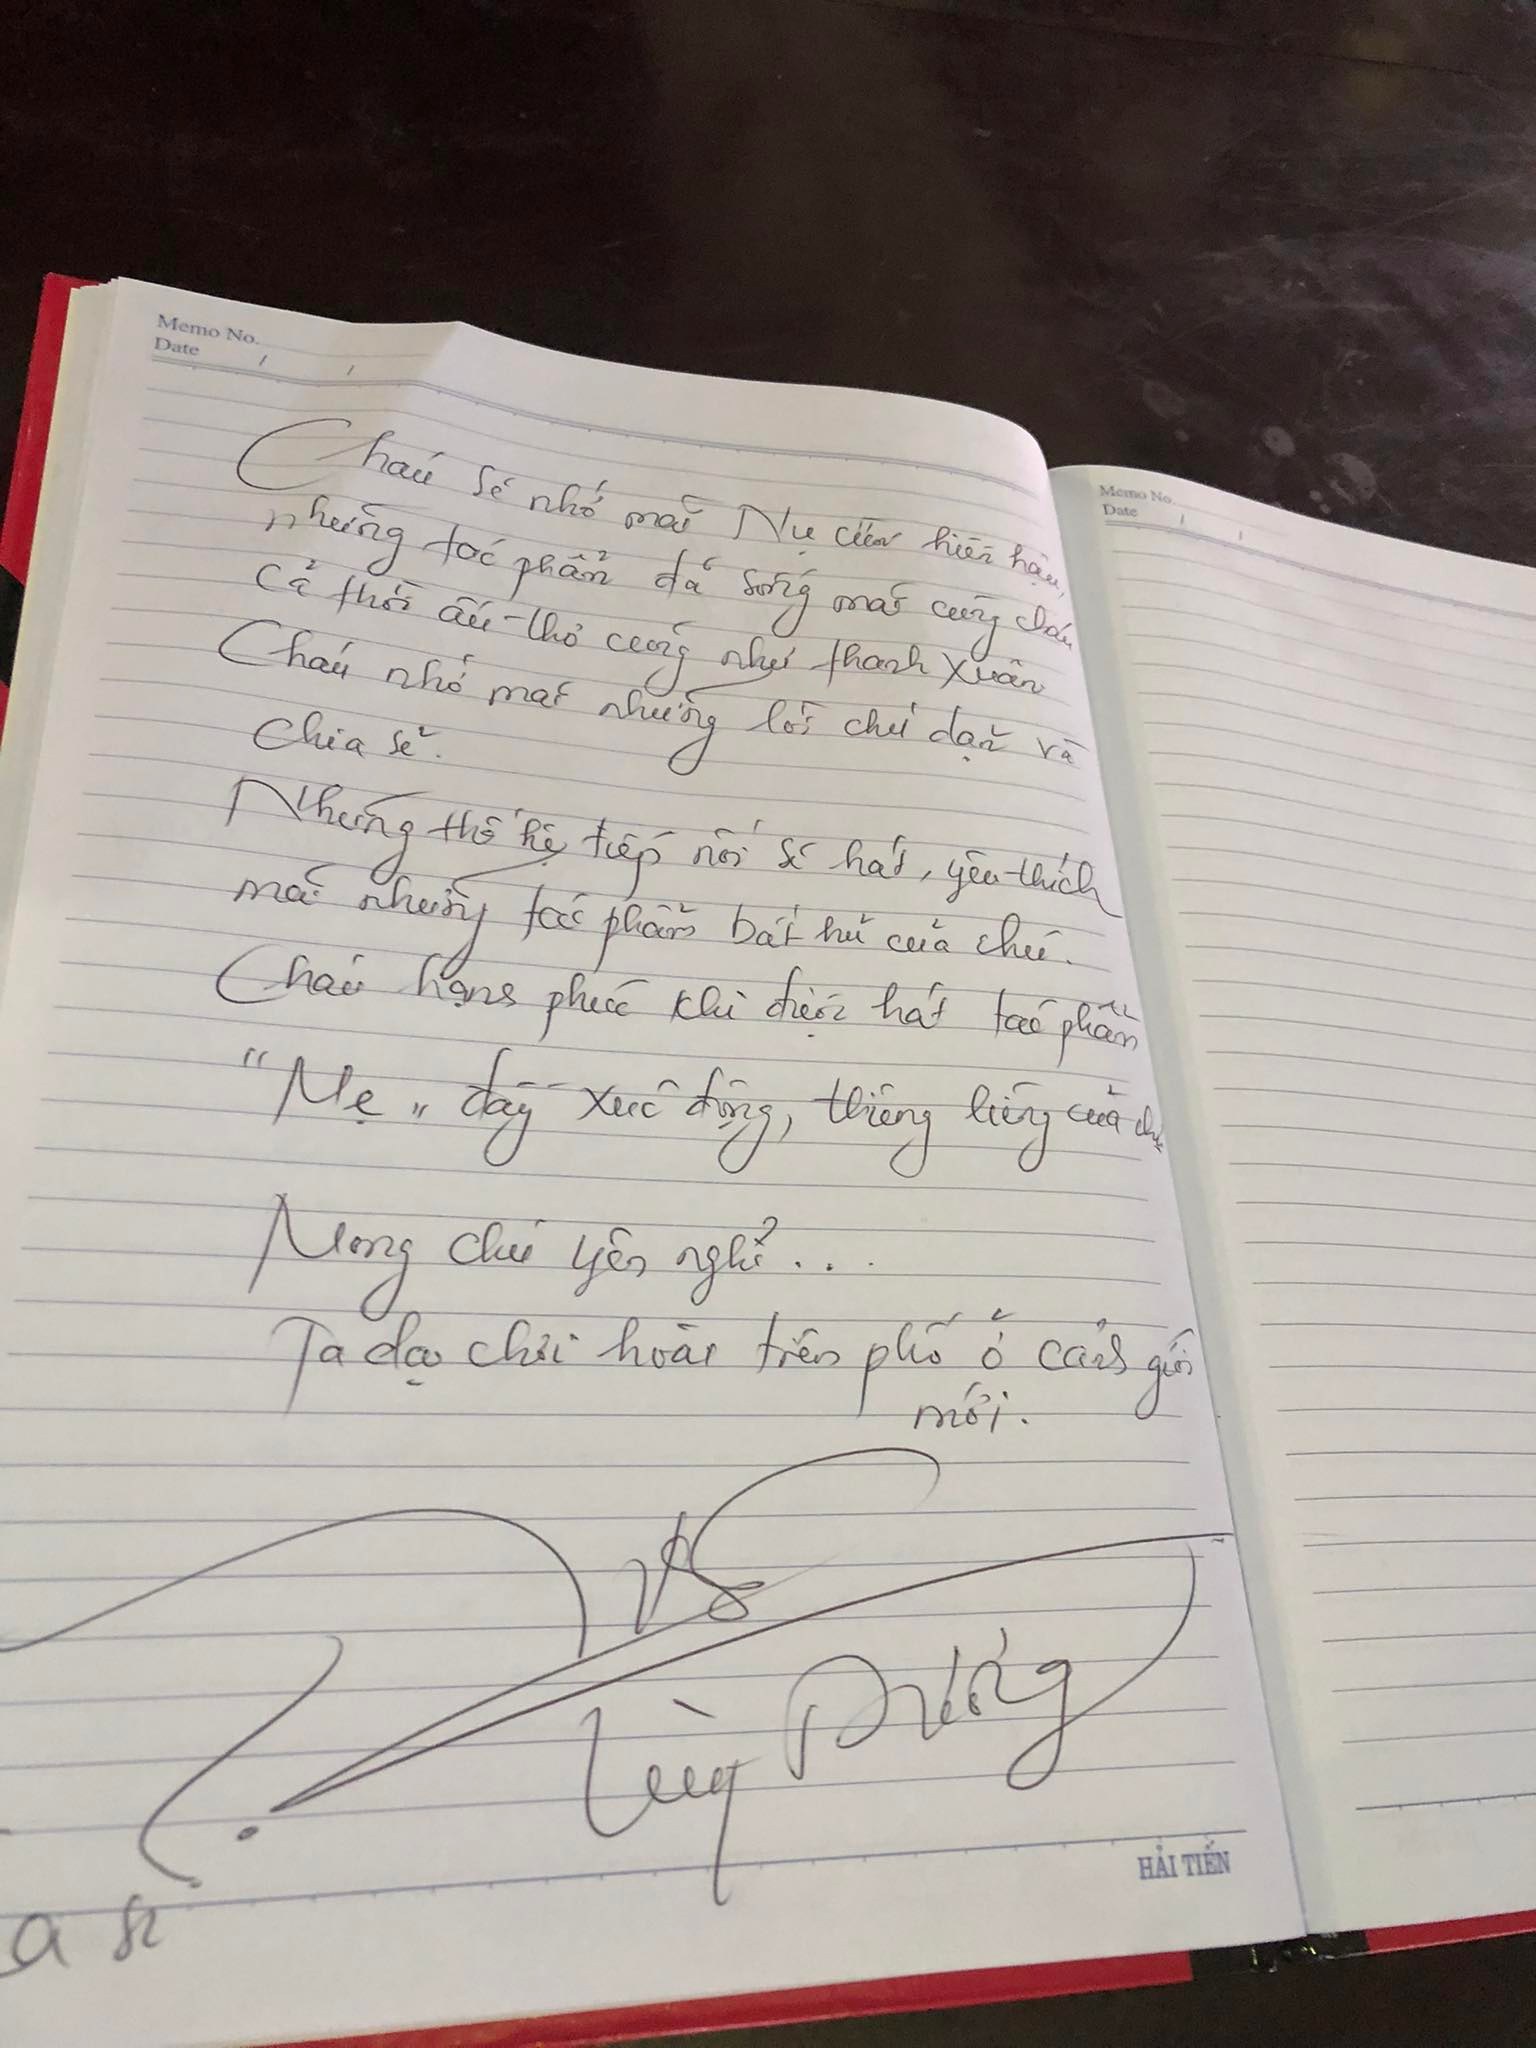 Memo No.
Date / /
Cháu sẽ nhớ mãi Nụ cười hiền hậu,
những tác phẩm đã sống mãi cùng cháu
cả thời ấu thơ cũng như thanh xuân
Cháu nhớ mãi những lời chú dạy và
chia sẻ.
Những thế hệ tiếp nối sẽ hát, yêu thích
mãi những tác phẩm bất hủ của chú.
Cháu hạnh phúc khi được hát tác phẩm
"Mẹ" đầy xúc động, thiêng liêng của chú
Mong chú yên nghỉ...
Tạ dạo chơi hoài trên phố ở cảnh giới
mới.
Thùy Dương
HẢI TIẾN
Memo No.
Date / /